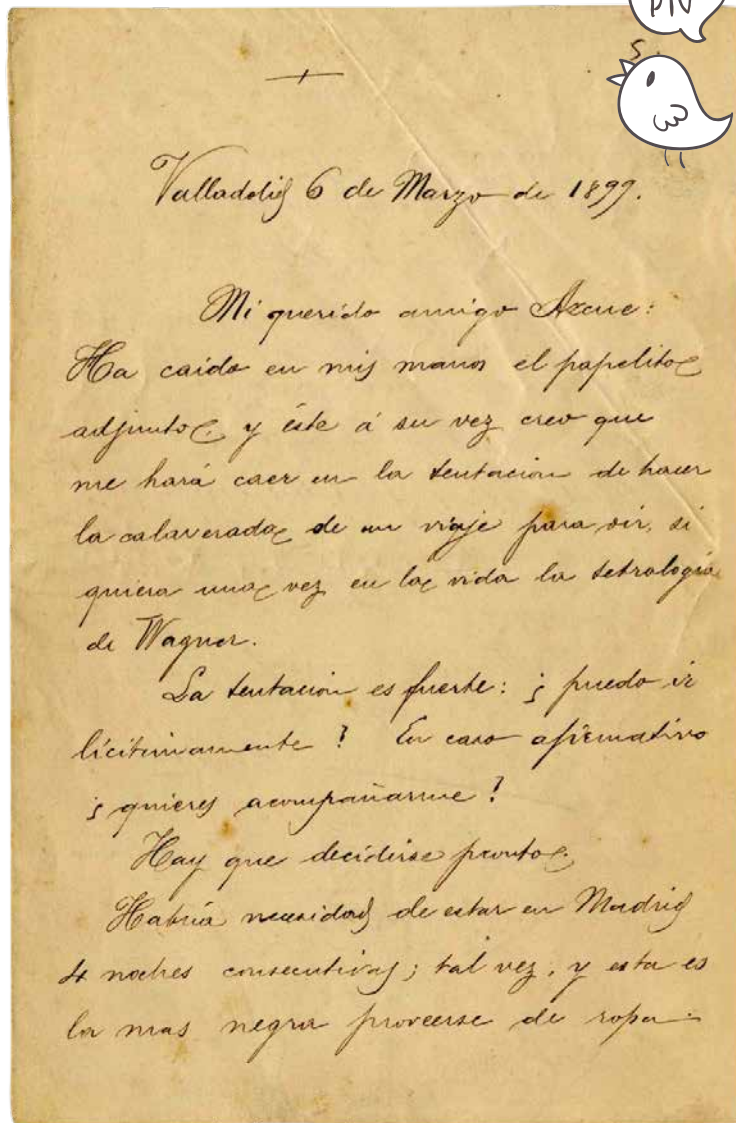 PIV
5
Valladolid 6 de Marzo de 1899.
Mi querido amigo Azcue:
Ha caído en mis manos el papelito
adjunto y éste á su vez creo que
me hará caer en la tentación de hacer
la calaverada de un viaje para oir, si
quiera una vez en la vida la tetralogía
de Wagner.
La tentación es fuerte: ¿puedo ir
lícitimamente? En caso afirmativo
¿quieres acompañarme?
Hay que decidirse pronto.
Habría necesidad de estar en Madrid
4 noches consecutivas; tal vez, y esta es
la mas negra proveerse de ropa